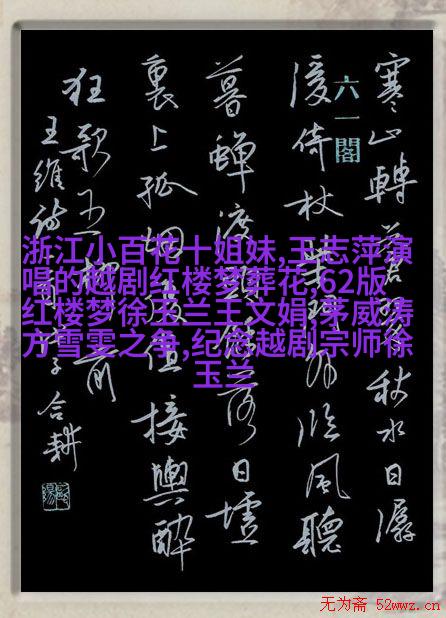 寒山轉蒼翠秋水日潺
六一閣
湲倚杖柴門外臨風聽
暮蟬渡頭餘落日墟
裏上孤烟復值接輿醉
狂歌五柳前
王維詩 合耕
浙江小百花十姐妹,王志萍演
唱的越剧红楼梦葬花,62版
红楼梦徐玉兰王文娟,茅威涛
方雪雯之争,纪念越剧宗师徐
玉兰
无为斋 52wwz.cn